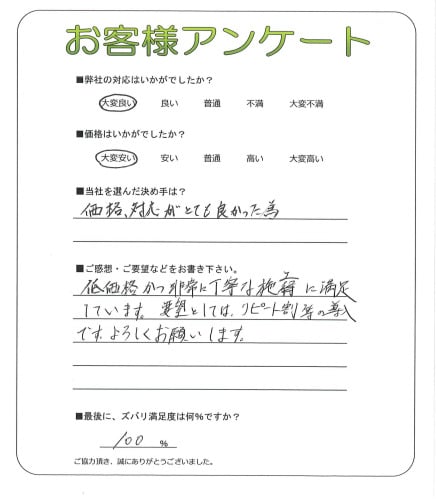 お客様アンケート
■弊社の対応はいかがでしたか?
大変良い 良い 普通 不満 大変不満
■価格はいかがでしたか?
大変安い 安い 普通 高い 大変高い
■当社を選んだ決め手は?
価格、対応がとても良かった為
■ご感想・ご要望などをお書き下さい。
低価格かつ非常に丁寧な施工に満足
しています。要望としては、リピート割等の導入
です。よろしくお願いします。
■最後に、ズバリ満足度は何%ですか?
100 %
ご協力頂き、誠にありがとうございました。